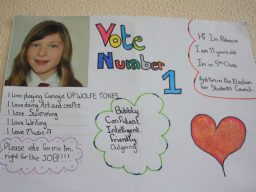 Vote
Number
1
Hi Im Rebecca
I am 11 years old
Im in 5th Class
And Im in the Election
for Students Council
I love playing Camogie UP WOLFE TONES
I love doing Art and crafts
I love Swimming
I love Writing
I love Music
Bubbly
Confident
Intelligent
friendly
Outgoing
Please vote for me Im
right for the JOB!!!!